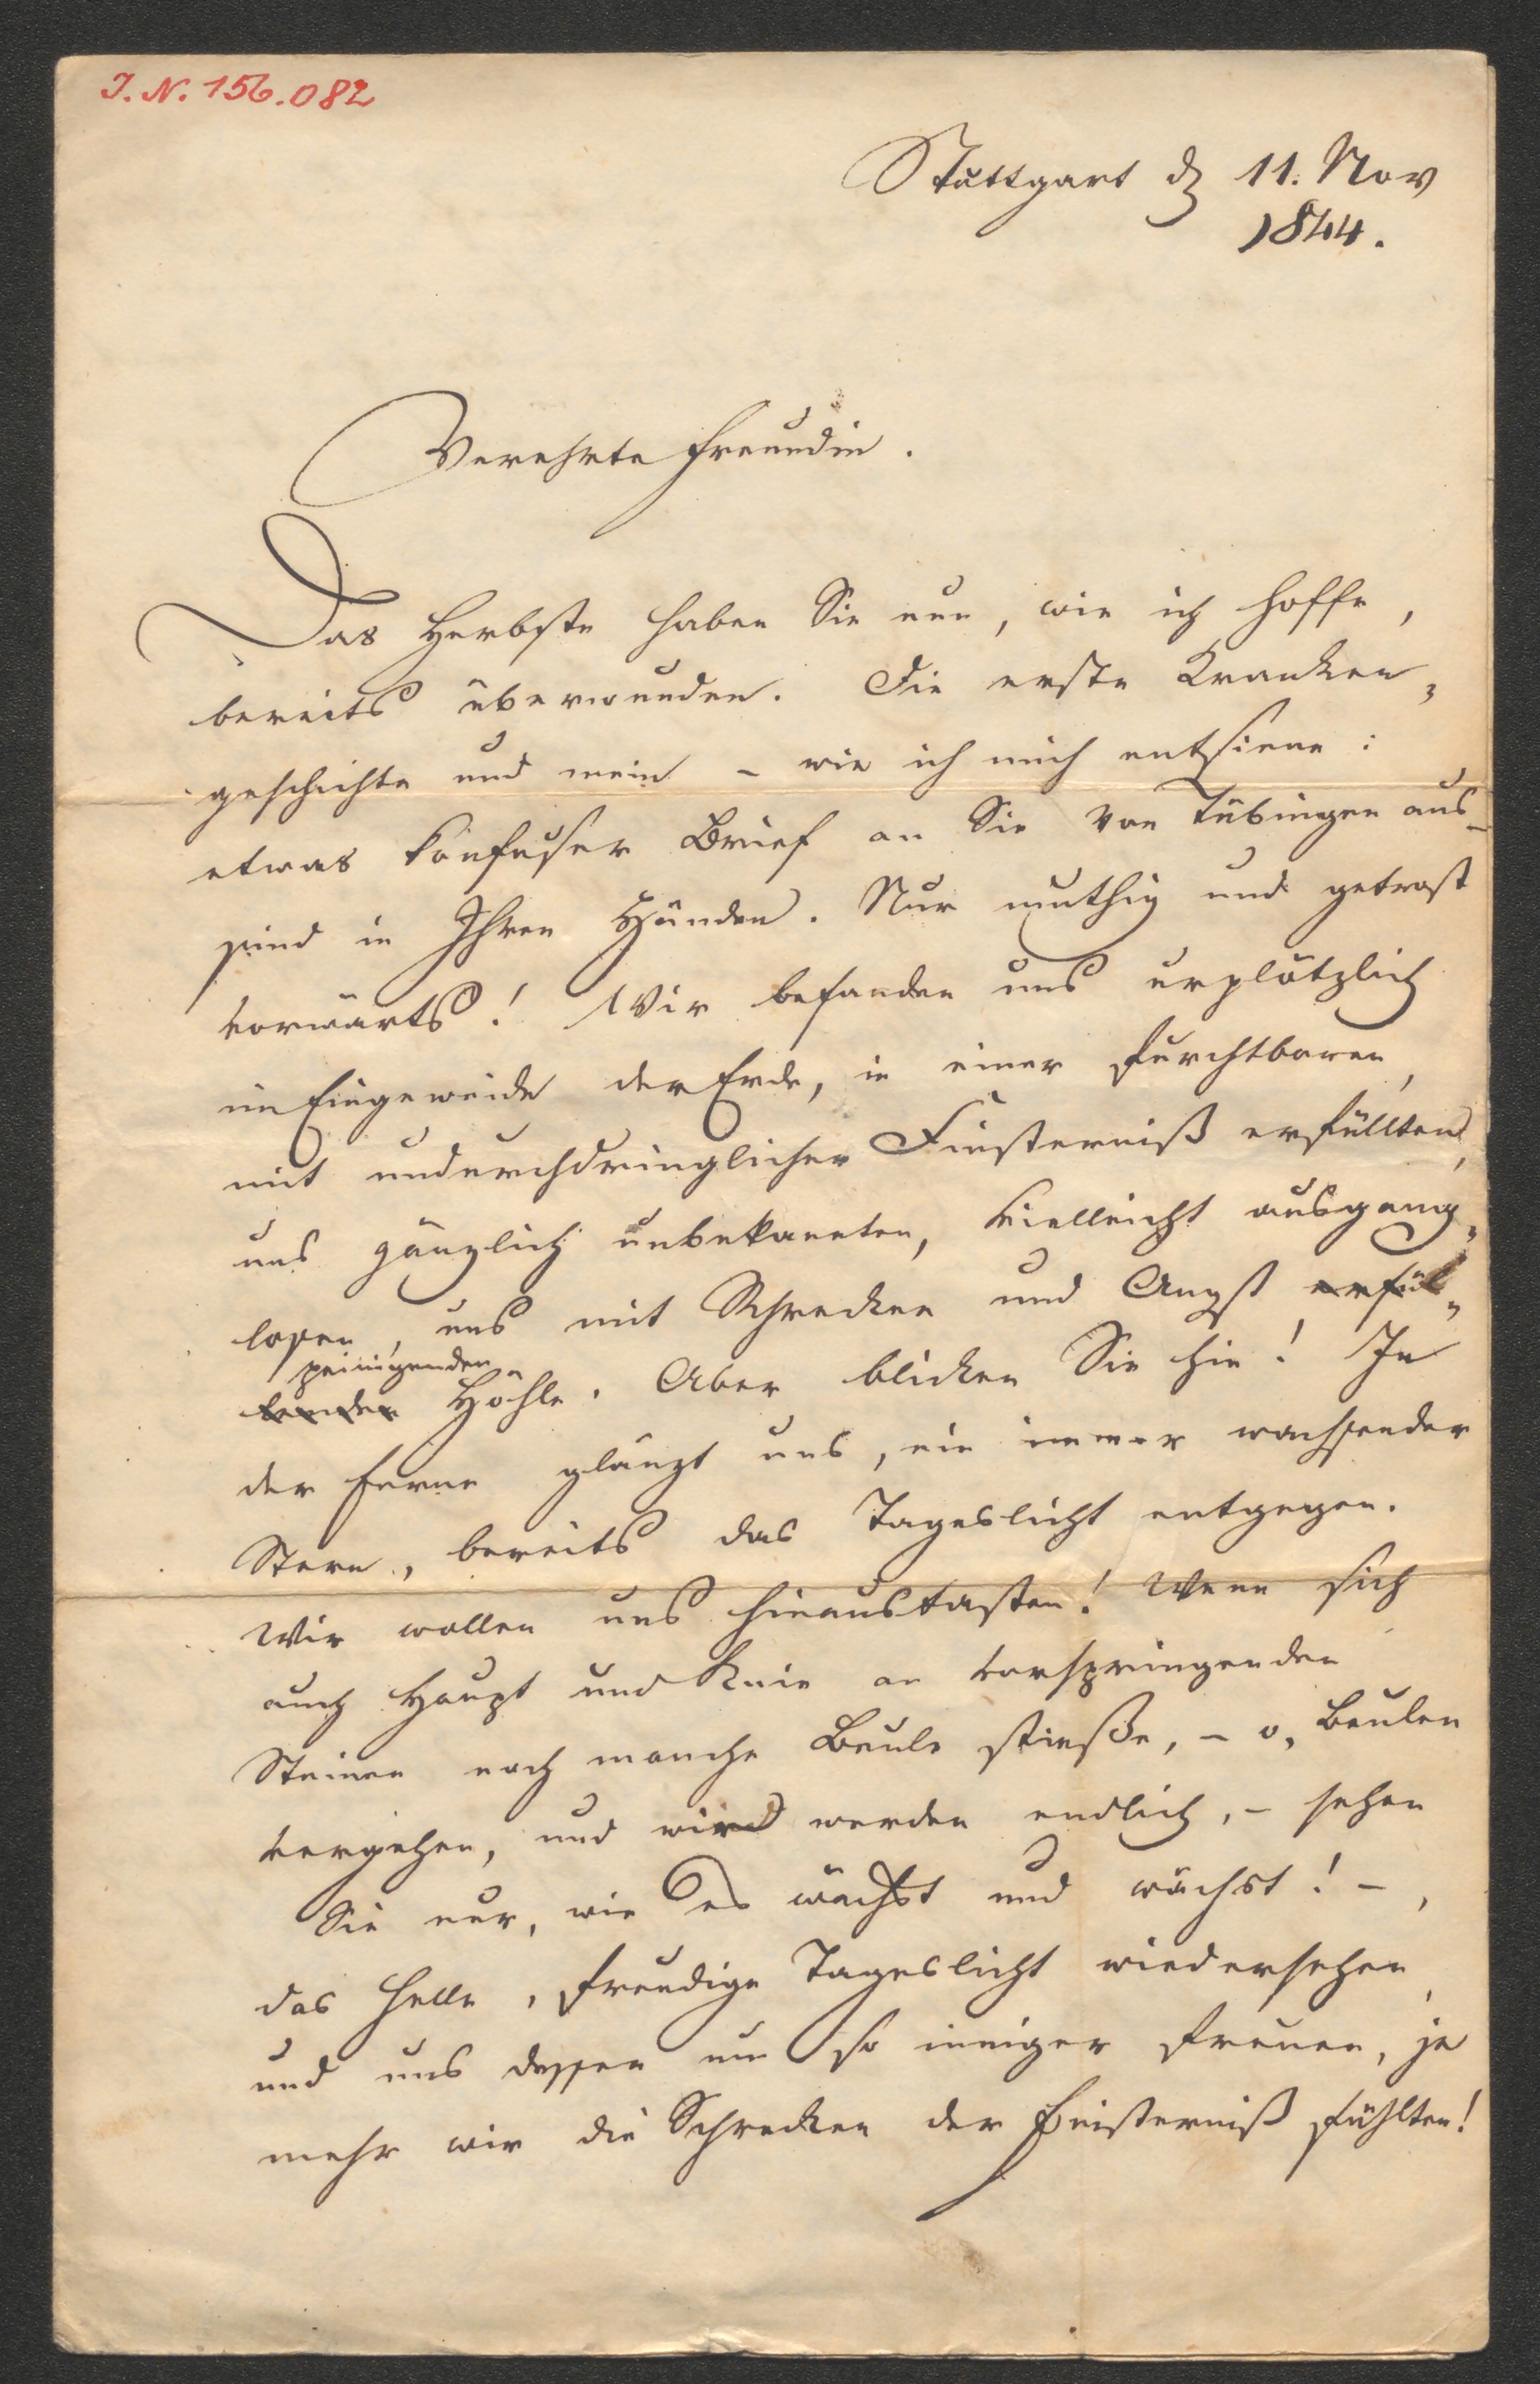 I. N. 156.082
Stuttgart d 11. Nov
1844.
Verehrte Freundin.
Das Herbste haben Sie nun, wie ich hoffe,
bereits überwunden. Die erste Kranken-
geschichte und mein – wie ich mich entsinne :
etwas konfuser Brief an Sie von Tübingen aus –
sind in Ihren Händen. Nur muthig und getrost
vorwärts! Wir befanden uns urplötzlich
im Eingeweide der Erde, in einer furchtbaren,
mit undurchdringlicher Finsterniß erfüllten,
uns gänzlich unbekannten, vielleicht ausgang-
losen, uns mit Schrecken und Angst erfül-
peinigenden
lenden Höhle. Aber blicken Sie hin! In
der Ferne glänzt uns, ein immer wachsender
Stern, bereits das Tageslicht entgegen.
Wir wollen uns hinaustasten! Wenn sich
auch Haupt und Knie an vorspringenden
Steinen noch manche Beule stieße, – o, Beulen
vergehen, und wir werden endlich, – sehen
Sie nur, wie es wächst und wächst! –,
das helle, freudige Tageslicht wiedersehen,
und uns dessen um so inniger freuen, je
mehr wir die Schrecken der Finsterniß fühlten!